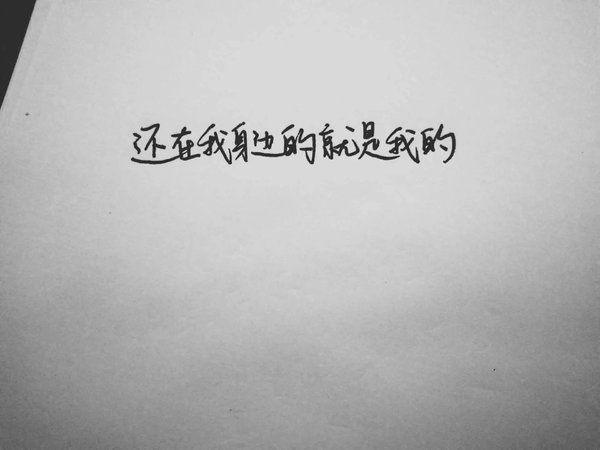 还在我身边的就是我的